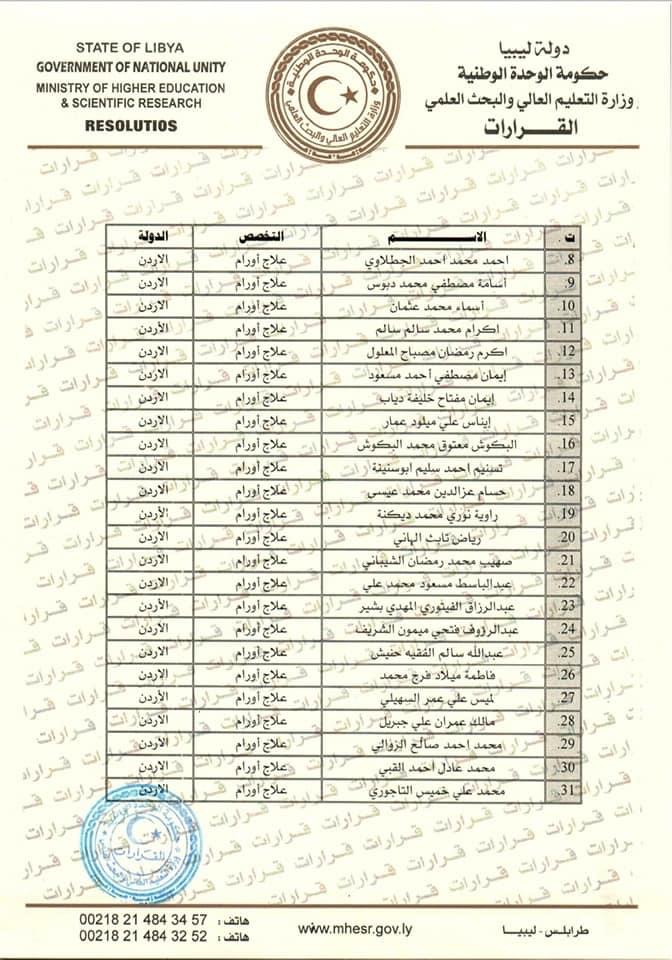 STATE OF LIBYA
GOVERNMENT OF NATIONAL UNITY
MINISTRY OF HIGHER EDUCATION
& SCIENTIFIC RESEARCH
RESOLUTIOS
حكومة الوحدة الوطنية
وزارة التعليم العالي والبحث العلمي
دولة ليبيا
حكومة الوحدة الوطنية
وزارة التعليم العالي والبحث العلمي
القــــرارات
ت. الاســـــــم التخصص الدولة
8. احمد محمد احمد الحطلاوي علاج أورام الاردن
9. أسامة مصطفي محمد دبوس علاج أورام الاردن
10. أسماء محمد عثمان علاج أورام الأردن
11. اكرام محمد سالم سالم علاج أورام الأردن
12. اكرم رمضان مصباح المعلول علاج أورام الاردن
13. إيمان مصطفي أحمد مسعود علاج أورام الاردن
14. إيمان مفتاح خليفة دياب علاج أورام الاردن
15. إيناس علي ميلود عمار علاج أورام الاردن
16. البكوش معتوق محمد البكوش علاج أورام الاردن
17. تسنيم احمد سليم ابوسنينة علاج أورام الاردن
18. حسام عزالدين محمد عيسى علاج أورام الاردن
19. راوية نوري محمد ديكنة علاج أورام الأردن
20. رياض ثابت الهاني علاج أورام الاردن
21. صهيب محمد رمضان الشيباني علاج أورام الاردن
22. عبدالباسط مسعود محمد علي علاج أورام الاردن
23. عبدالرزاق الفيتوري المهدي بشير علاج أورام الأردن
24. عبدالرؤوف فتحي ميمون الشريف علاج أورام الاردن
25. عبدالله سالم الفقيه حنيش علاج أورام الاردن
26. فاطمة ميلاد فرج محمد علاج أورام الاردن
27. لميس علي عمر السهيلي علاج أورام الأردن
28. مالك عمران علي جبريل علاج أورام الاردن
29. محمد احمد صالح الزوالي علاج أورام الأردن
30. محمد عادل احمد القبي علاج أورام الاردن
31. محمد علي خميس التاجوري علاج أورام الاردن
القرارات
هاتف : 00218 21 484 34 57
هاتف : 00218 21 484 32 52
www.mhesr.gov.ly
طرابلس - ليبيا